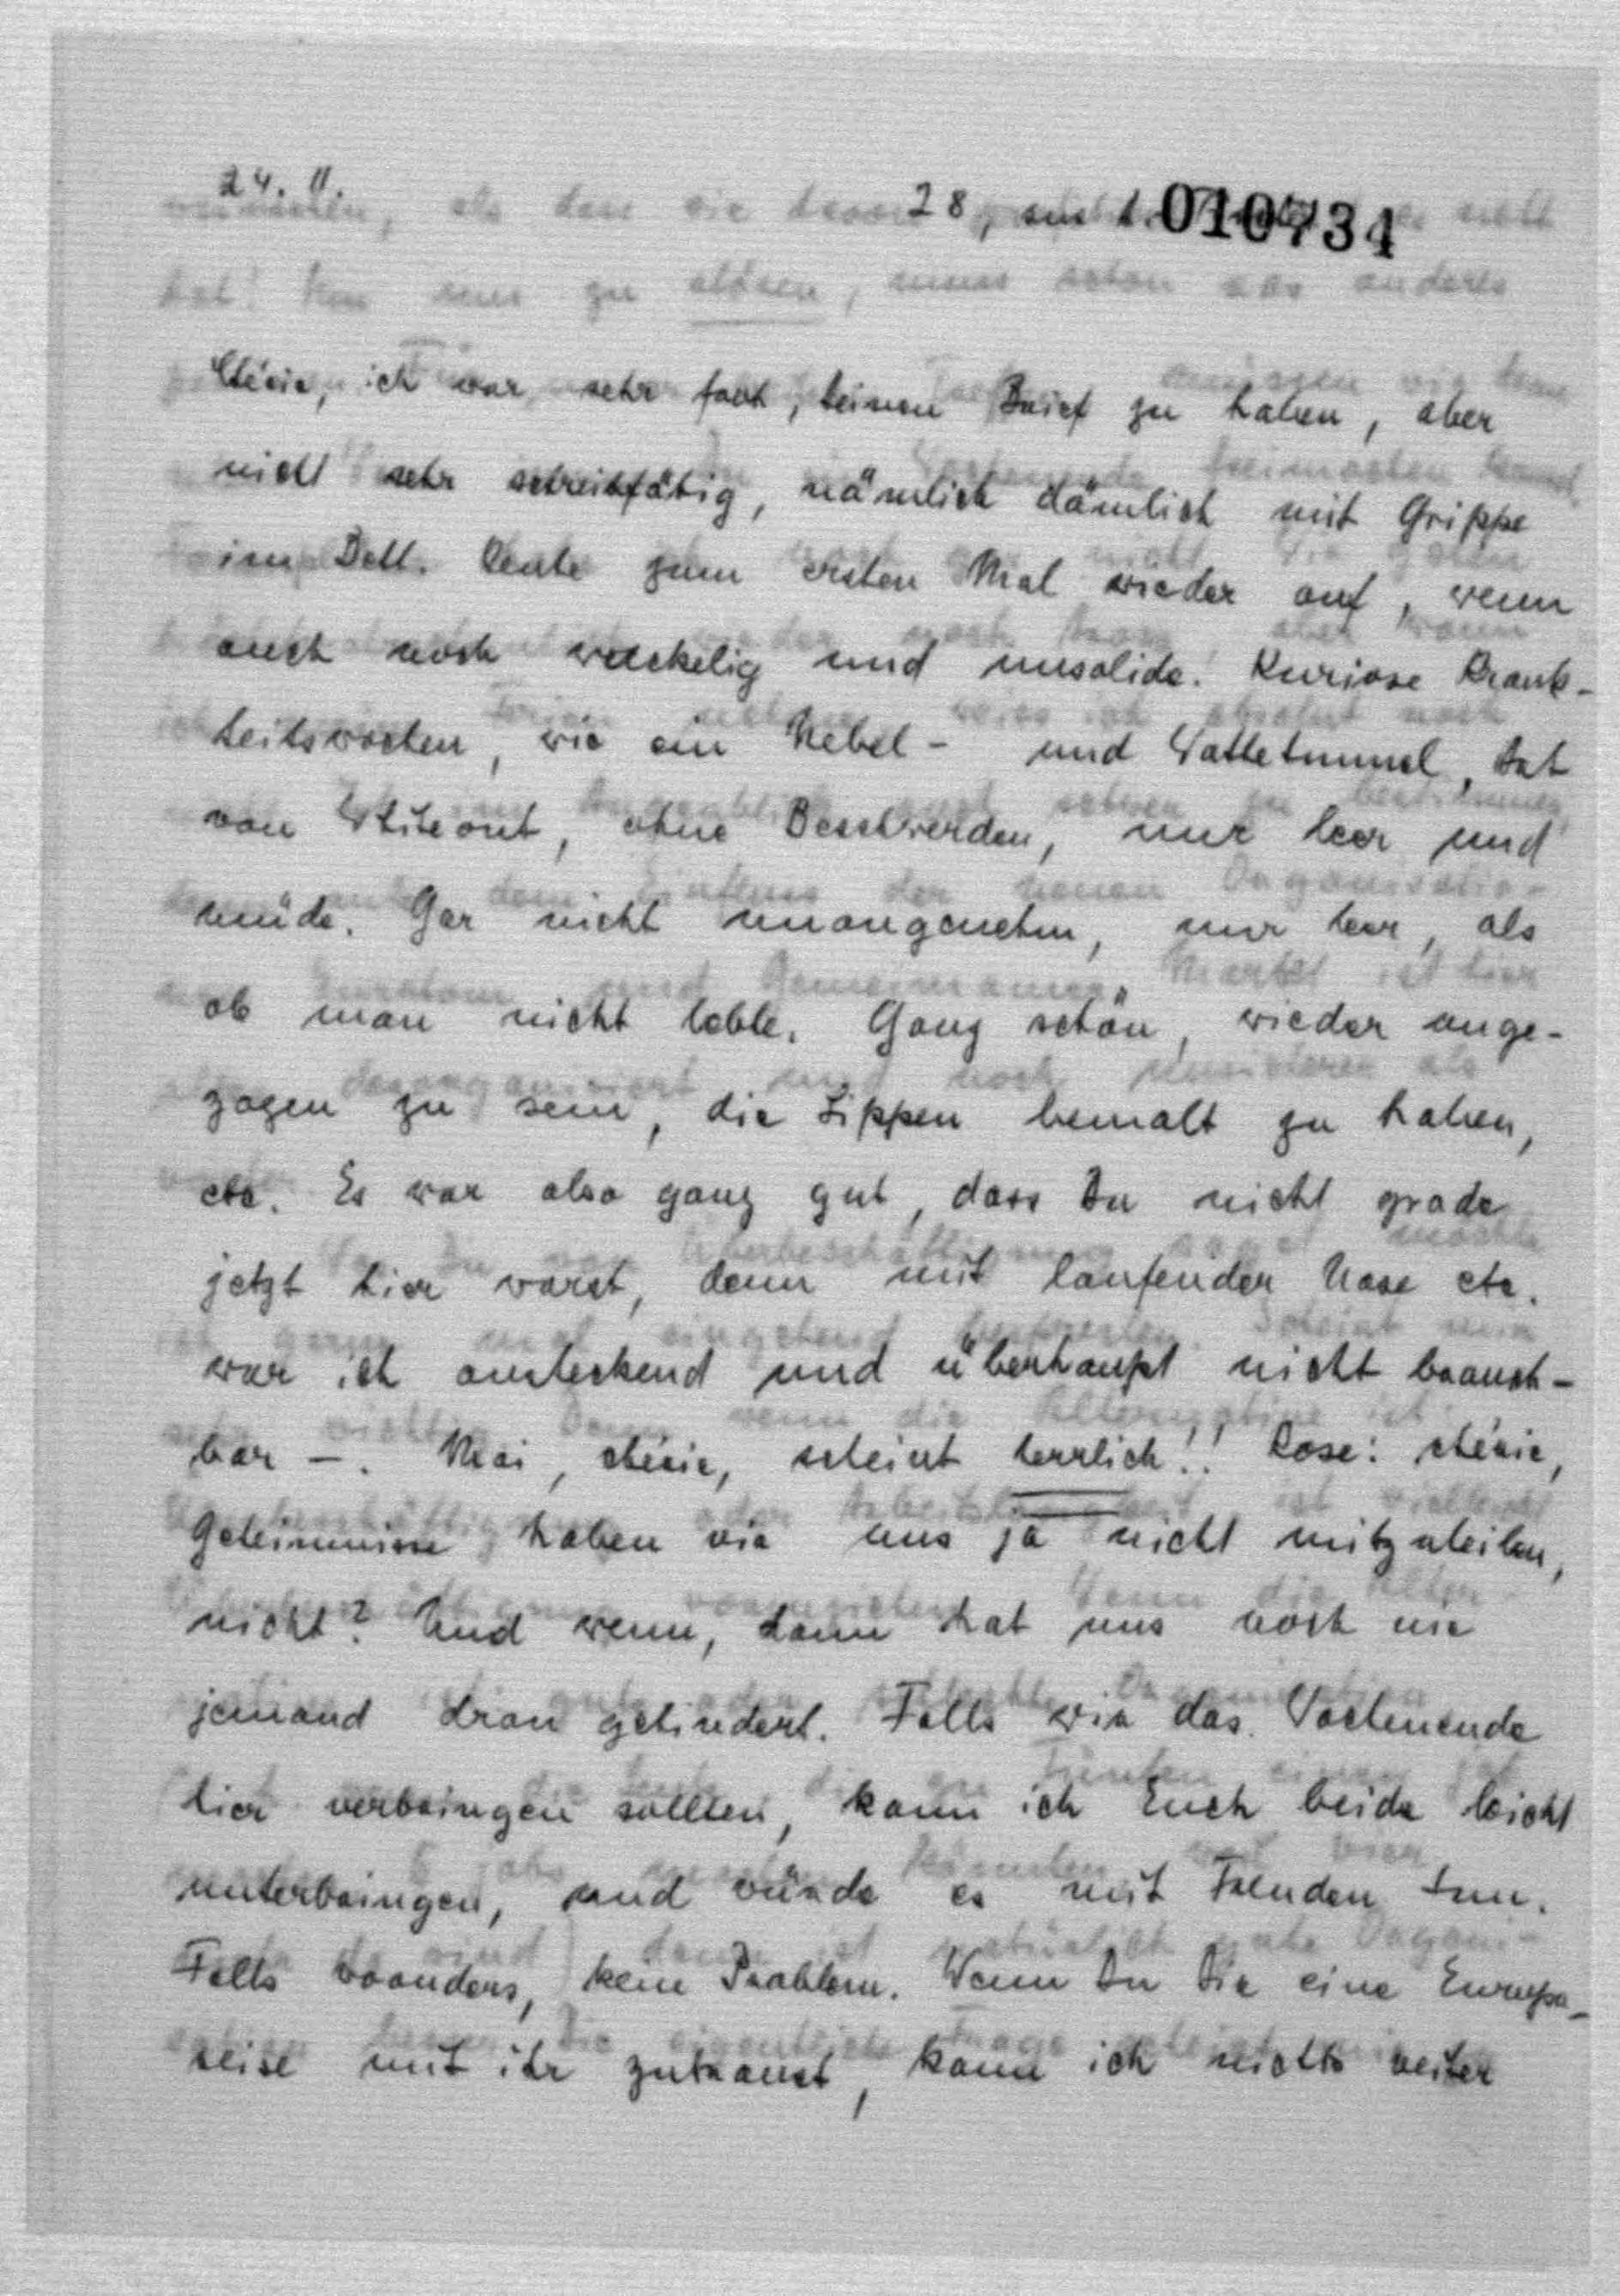 24. 11.
28, 010734
Chérie, ich war sehr froh, Deinen Brief zu haben, aber
nicht sehr schreibfähig, nämlich dämlich mit Grippe
im Bett. Heute zum ersten Mal wieder auf, wenn
auch noch wackelig und unsolide. Kuriose Krank-
heitswochen, wie ein Nebel- und Wattetunnel, hat
von ohne Beschwerden, nur leer und
müde. Gar nicht unangenehm, nur leer, als
ob man nicht lebte. Ganz schön, wieder ange-
zogen zu sein, die Lippen bemalt zu haben,
etc. Es war also ganz gut, dass Du nicht grade
jetzt hier warst, denn mit laufender Nase etc.
war ich ansteckend und überhaupt nicht brauch-
bar –. Mai, chérie, scheint herrlich!! Rose: chérie,
Geheimnisse haben wir uns ja nicht mitzuteilen,
nicht? Und wenn, dann hat uns noch nie
jemand dran gehindert. Falls wir das Wochenende
hier verbringen sollten, kann ich Euch beide leicht
unterbringen, und würde es mit Freuden tun.
Falls woanders, kein Problem. Wenn Du Dir eine Europa-
reise mit ihr zutraust, kann ich nichts weiter